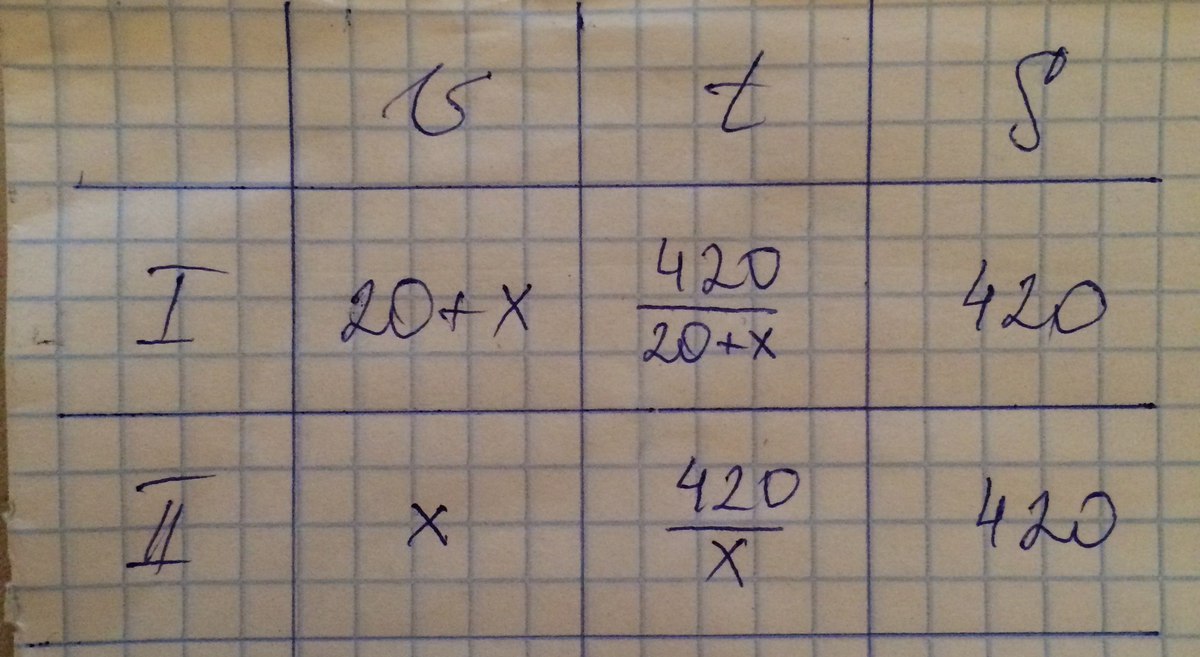 v t S
I 20+x 420/20+x 420
II x 420/x 420